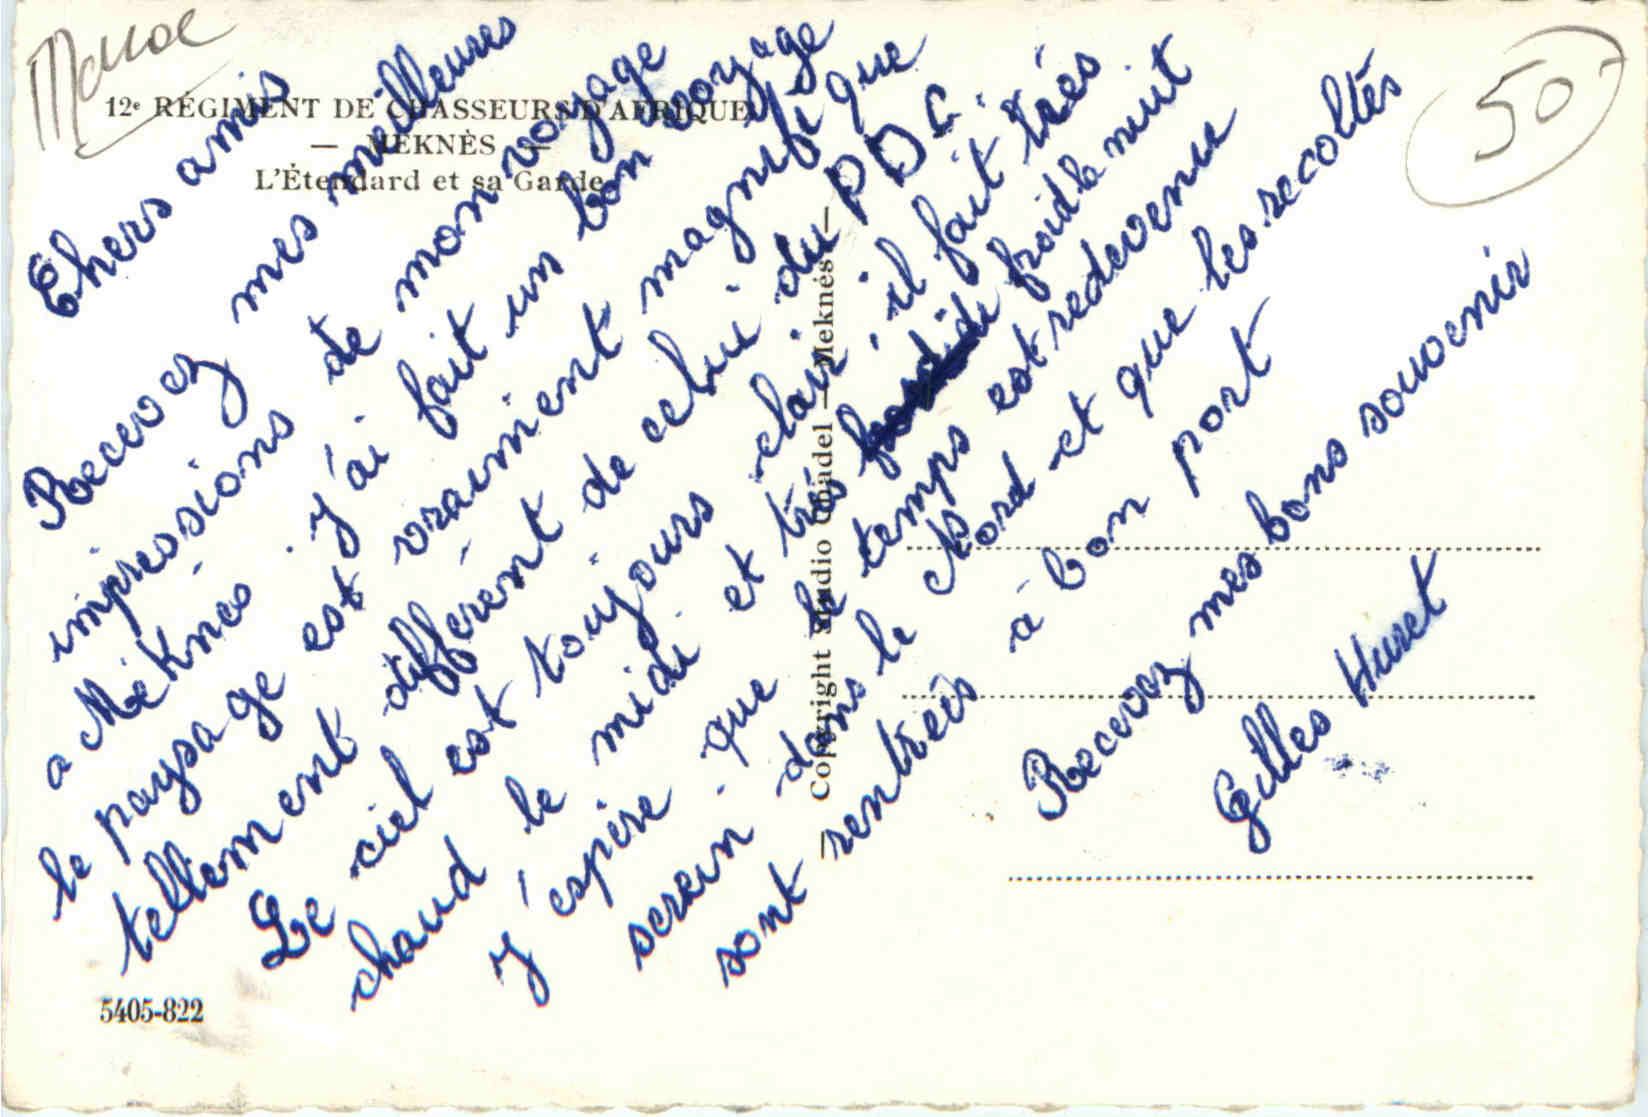 Maroc
50
12e RÉGIMENT DE CHASSEURS D'AFRIQUE
— MEKNÈS —
L'Étendard et sa Garde
Chers amis
Recevez mes meilleures
impressions de mon voyage
a Mèknès. j'ai fait un bon voyage
le paysage est vraiment magnifique
tellement différent de celui du P D C.
Le ciel est toujours clair, il fait très
chaud le midi et très froid la nuit
j'espère que le temps est redevenu
serein dans le Nord et que les recoltés
sont rentreés à bon port
Recevez mes bons souvenir
Gilles Huret
Copyright Studio Chadel — Meknès —
5405-822